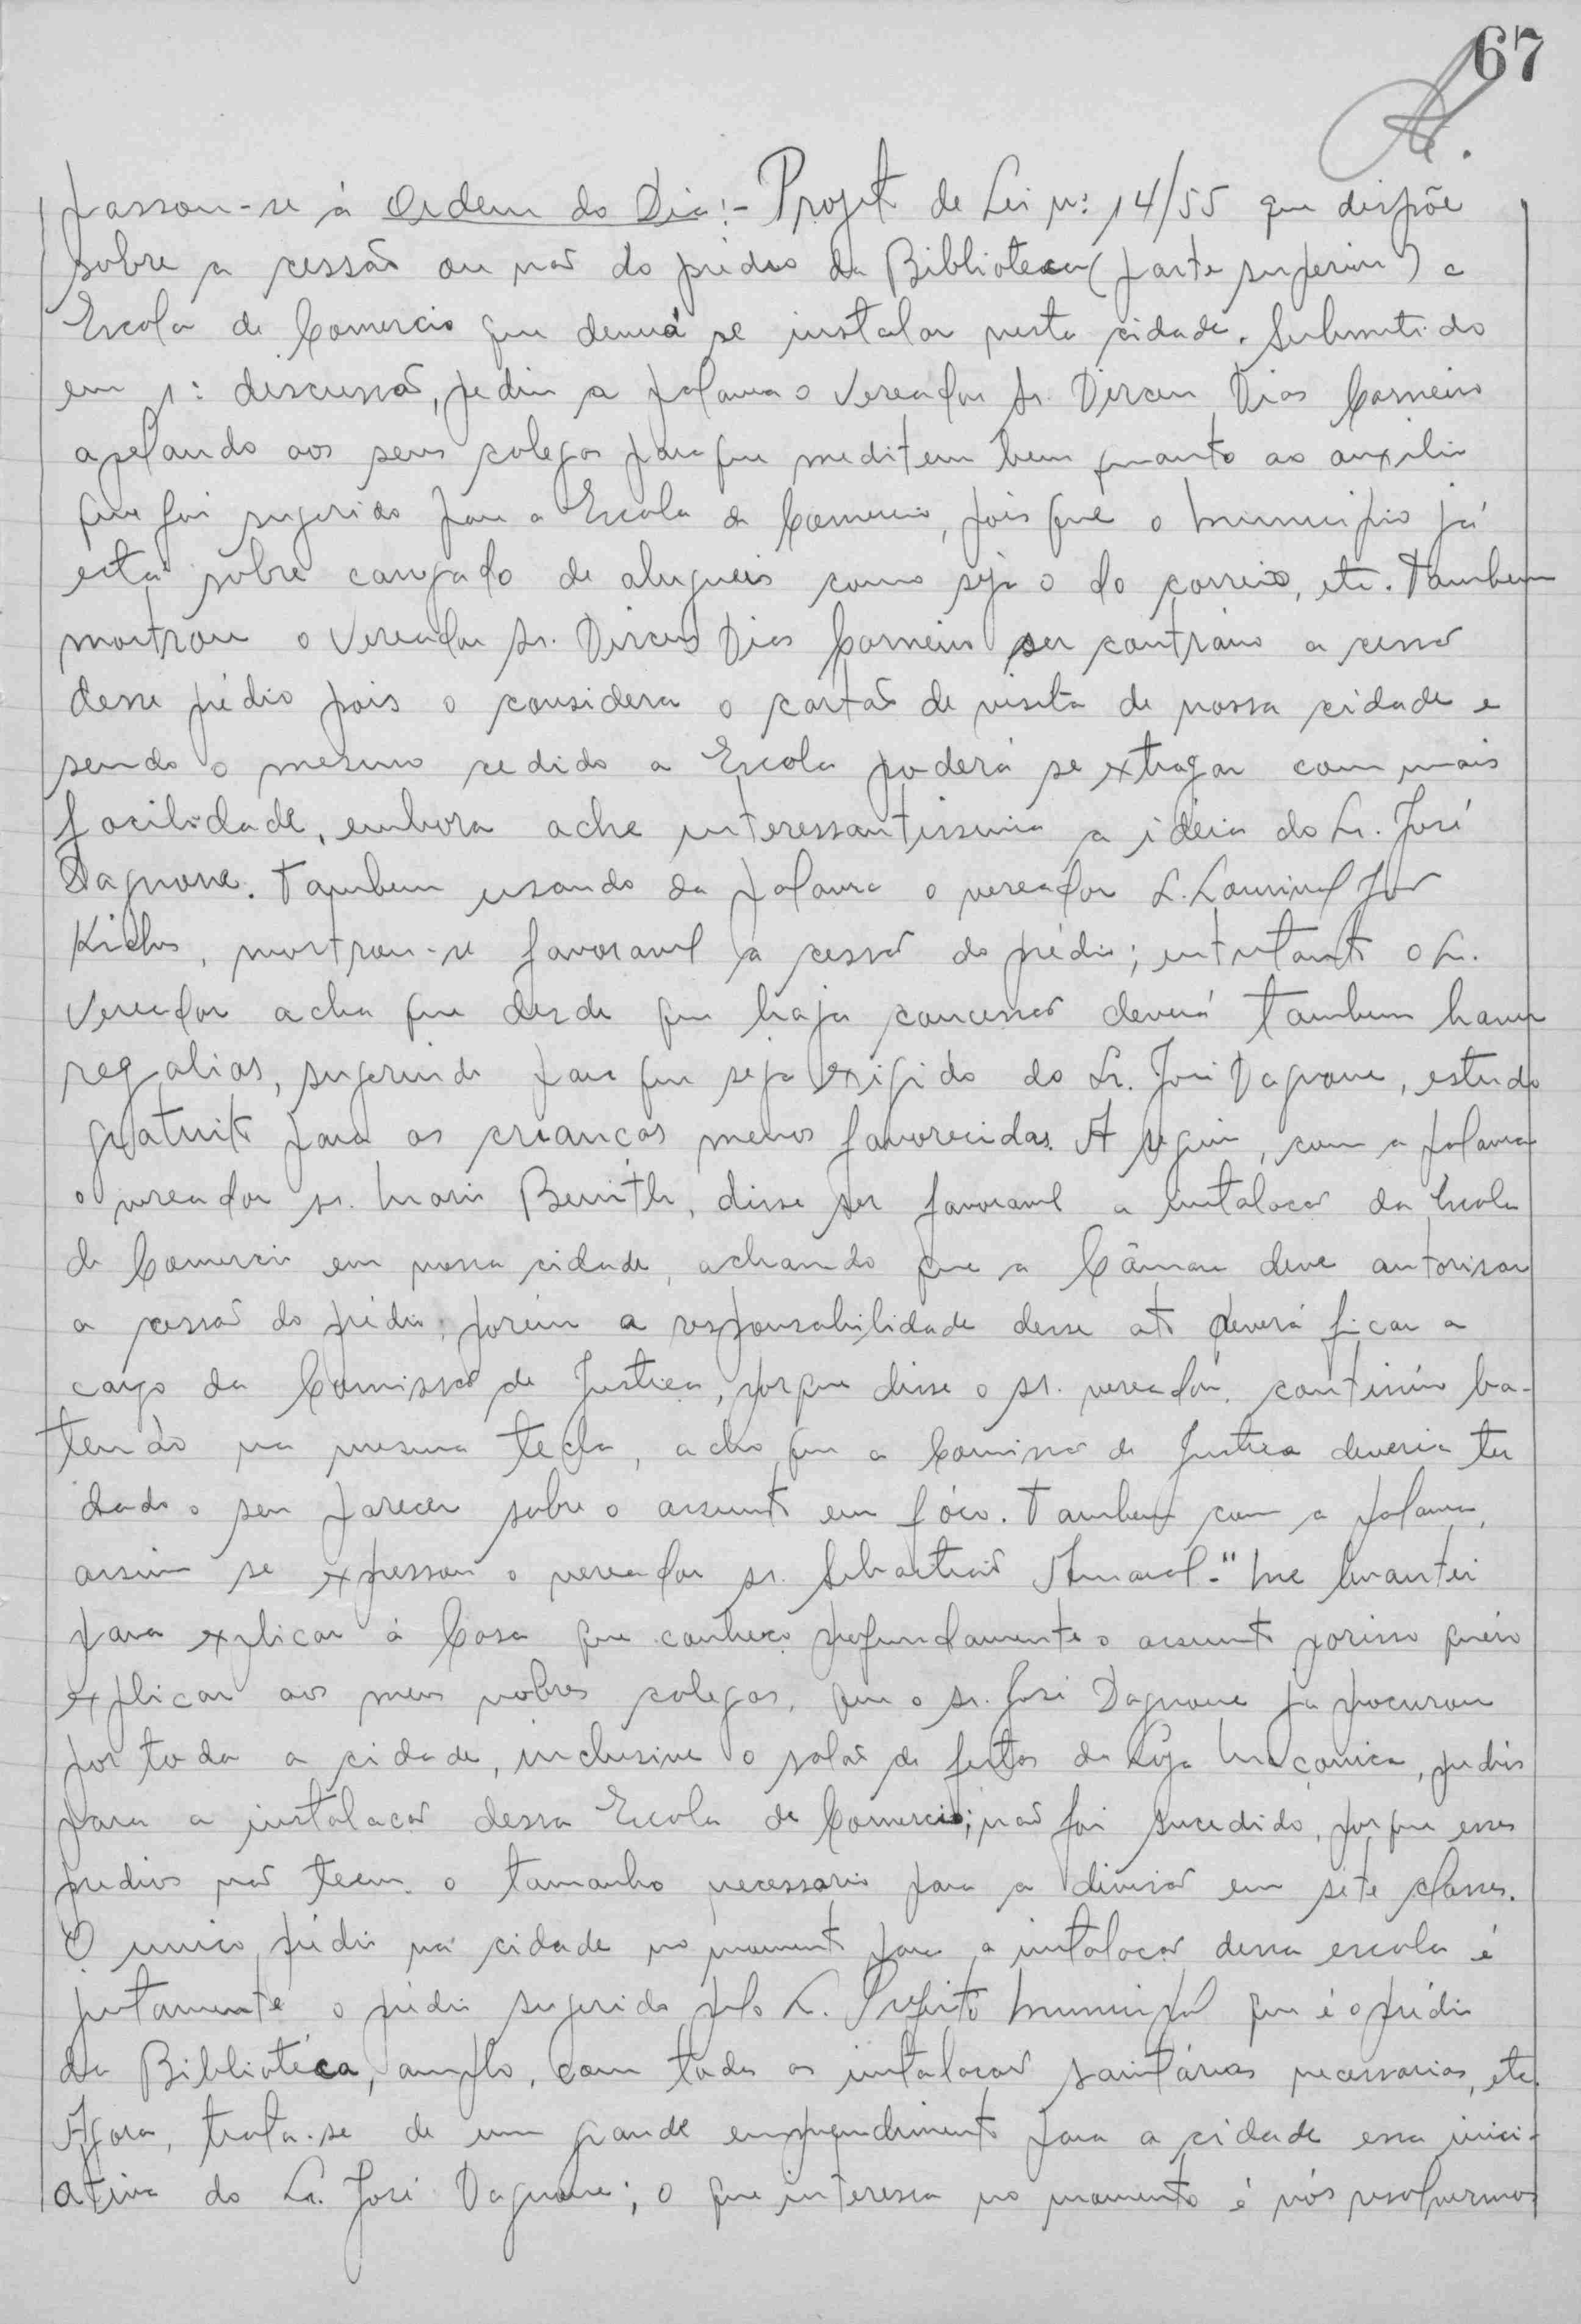 67
passou-se à Ordem do Dia:- Projeto de Lei nº: 14/55 que dispõe
sobre a cessão ou não do prédio da Biblioteca (parte superior) a
Escola de Comercio que deverá se instalar nesta cidade. Submetido
em 1ª: discussão, pediu a palavra o Vereador Sr. Dirceu Dias Carneiro
apelando aos seus colegas para que meditem bem quanto ao auxilio
que foi sugerido para a Escola de Comercio, pois que o Municipio já
está sobre carregado de alugueis como seja o do correio, etc. Tambem
mostrou o Vereador Sr. Dirceu Dias Carneiro ser contrário a cessão
desse prédio pois o considera o cartão de visita de nossa cidade e
sendo o mesmo cedido a Escola poderá se extragar com mais
facilidade, embora ache interessantissima a idéia do Sr. José
Dagnone. Tambem usando da palavra o vereador Sr. Lourival José
mostrou-se favoravel à cessão do prédio; entretanto o Sr.
Vereador acha que desde que haja concessão deverá tambem haver
regalias, sugerindo para que seja exigido do Sr. José Dagnone, estudo
gratuito para as crianças menos favorecidas. A seguir, com a palavra
o vereador sr. Mario disse ser favoravel a instalação da Escola
de Comercio em nossa cidade, achando que a Câmara deve autorisar
a cessão do prédio; porém a responsabilidade desse ato deverá ficar a
cargo da Comissão de Justiça, porque disse o sr. vereador, continúo ba-
tendo na mesma tecla, acho que a Comissão de Justiça deveria ter
dado o seu parecer sobre o assunto em fóco. Tambem com a palavra,
assim se expressou o vereador sr. Sebastião Amaral-"Me levantei
para explicar à Casa que conheço profundamente o assunto porisso quero
explicar aos meus nobres colegas, que o sr. José Dagnone já procurou
por toda a cidade, inclusive o salão de festas da Loja Maçonica, prédios
para a instalação dessa Escola de Comercio; não foi sucedido, porque esses
predios não teem o tamanho necessario para a divisão em sete classes.
O unico prédio na cidade no momento para a instalação dessa escola é
justamente o prédio sugerido pelo Sr. Prefeito Municipal que é o prédio
da Bibliotéca, amplo, com todas as instalações sanitárias necessarias, etc.
Agora, trata-se de um grande empreendimento para a cidade essa inici-
ativa do Sr. José Dagnone; o que interessa no momento é nós resolvermos